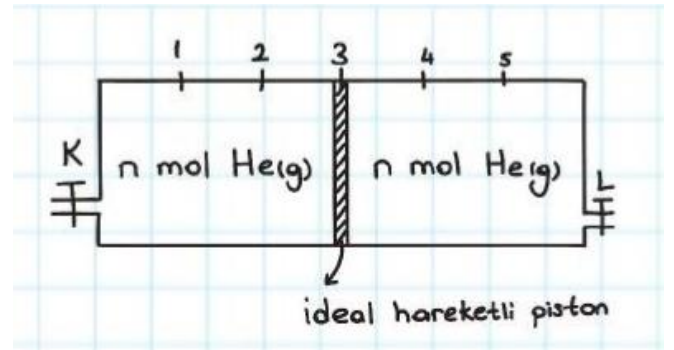 1 2 3 4 5
K
n mol He(g) n mol He(g)
L
ideal hareketli piston